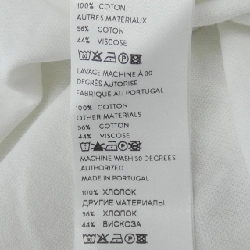 100% COTON
AUTRES MATERIAUX
56% COTON
44% VISCOSE
LAVAGE MACHINE A 30
DEGRÉS AUTORISE
FABRIQUE AU PORTUGAL
100% COTTON
OTHER MATERIALS
56% COTTON
44% VISCOSE
MACHINE WASH 30 DEGREES
AUTHORIZED
MADE IN PORTUGAL
100% ХЛОПОК
ДРУГИЕ МАТЕРИАЛЫ
56% ХЛОПОК
44% ВИСКОЗА